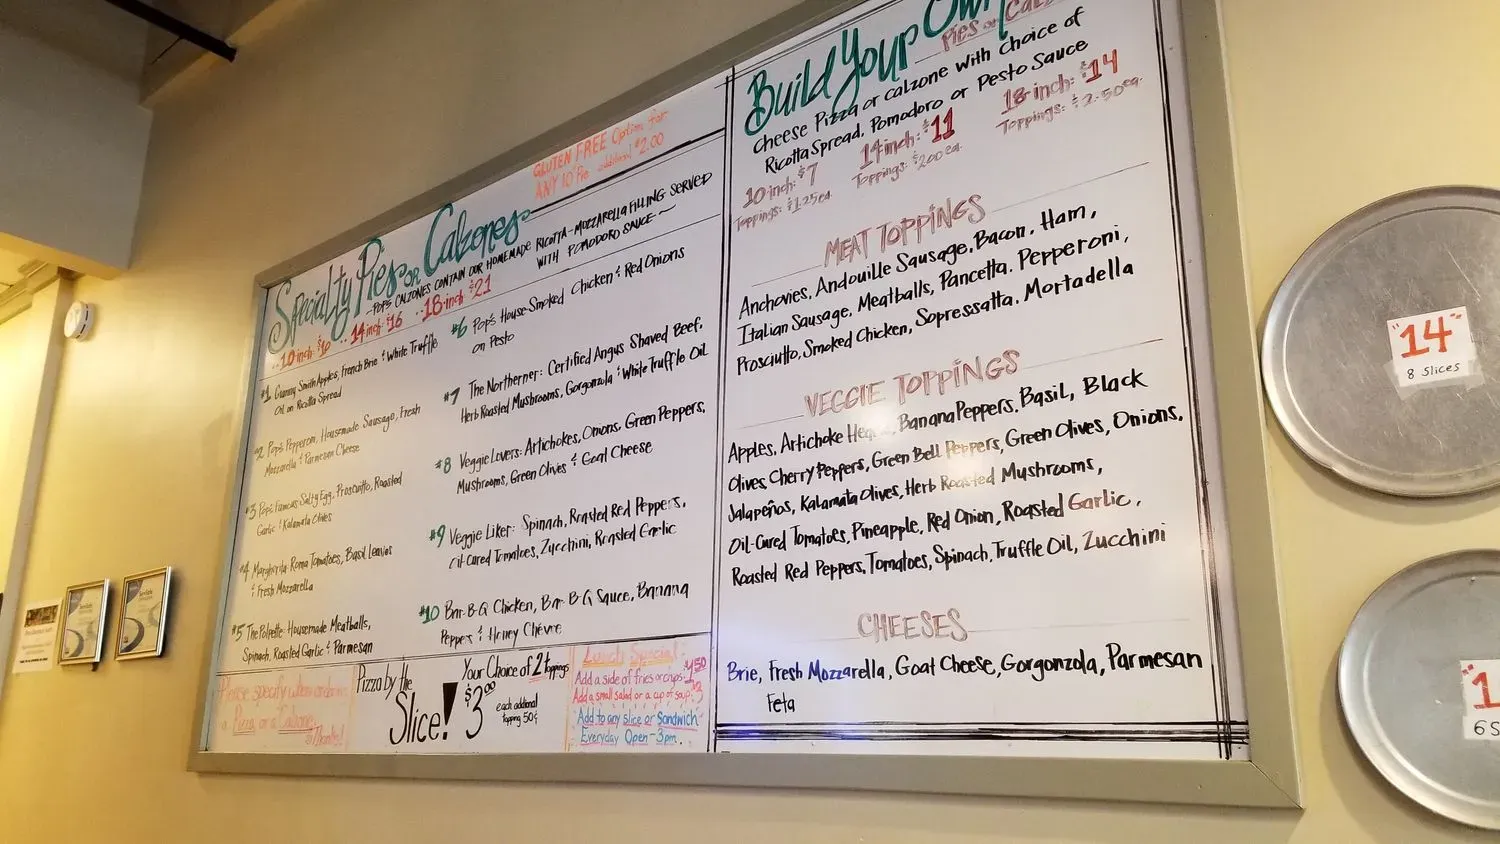 GLUTEN FREE Option for
ANY 10" Pie additional $2.00
Specialty Pies or Calzones
-POP'S CALZONES CONTAIN OUR HOMEMADE RICOTTA-MOZZARELLA FILLING SERVED
WITH POMODORO SAUCE-
10 inch $10 ·· 14 inch $16 ·· 18 inch $21
#1 Granny Smith Apples, French Brie & White Truffle
Oil on Ricotta Spread
#2 Pop's Pepperoni, Housemade Sausage, Fresh
Mozzarella & Parmesan Cheese
#3 Pop's Famous Salty Egg, Prosciutto, Roasted
Garlic & Kalamata Olives
#4 Margherita: Roma Tomatoes, Basil Leaves
& Fresh Mozzarella
#5 The Polpette: Housemade Meatballs,
Spinach, Roasted Garlic & Parmesan
#6 Pop's House-Smoked Chicken & Red Onions
on Pesto
#7 The Northerner: Certified Angus Shaved Beef,
Herb Roasted Mushrooms, Gorgonzola & White Truffle Oil
#8 Veggie Lovers: Artichokes, Onions, Green Peppers,
Mushrooms, Green Olives & Goat Cheese
#9 Veggie Liker: Spinach, Roasted Red Peppers,
Oil-Cured Tomatoes, Zucchini, Roasted Garlic
#10 Bar-B-Q Chicken, Bar-B-Q Sauce, Banana
Peppers & Honey Chevre
Please specify when ordering
a Pizza or a Calzone
Thanks!
Pizza by the
Slice!
Your Choice of 2 toppings
$3.00
each additional
topping 50¢
Lunch Special
Add a side of fries or chips $1.50
Add a small salad or a cup of soup $3
Add to any slice or Sandwich
Everyday Open-3pm.
Build Your Own
Pies or Calzones
Cheese Pizza or calzone with Choice of
Ricotta Spread, Pomodoro or Pesto Sauce
10-inch: $7
Toppings: $1.25 ea.
14 inch: $11
Toppings: $2.00 ea.
18-inch: $14
Toppings: $2.50 ea.
MEAT TOPPINGS
Anchovies, Andouille Sausage, Bacon, Ham,
Italian Sausage, Meatballs, Pancetta, Pepperoni,
Prosciutto, Smoked Chicken, Sopressatta, Mortadella
VEGGIE TOPPINGS
Apples, Artichoke Hearts, Banana Peppers, Basil, Black
Olives, Cherry Peppers, Green Bell Peppers, Green Olives, Onions,
Jalapeños, Kalamata Olives, Herb Roasted Mushrooms,
Oil-Cured Tomatoes, Pineapple, Red Onion, Roasted Garlic,
Roasted Red Peppers, Tomatoes, Spinach, Truffle Oil, Zucchini
CHEESES
Brie, Fresh Mozzarella, Goat Cheese, Gorgonzola, Parmesan
Feta
"14"
8 Slices
"1
6 S